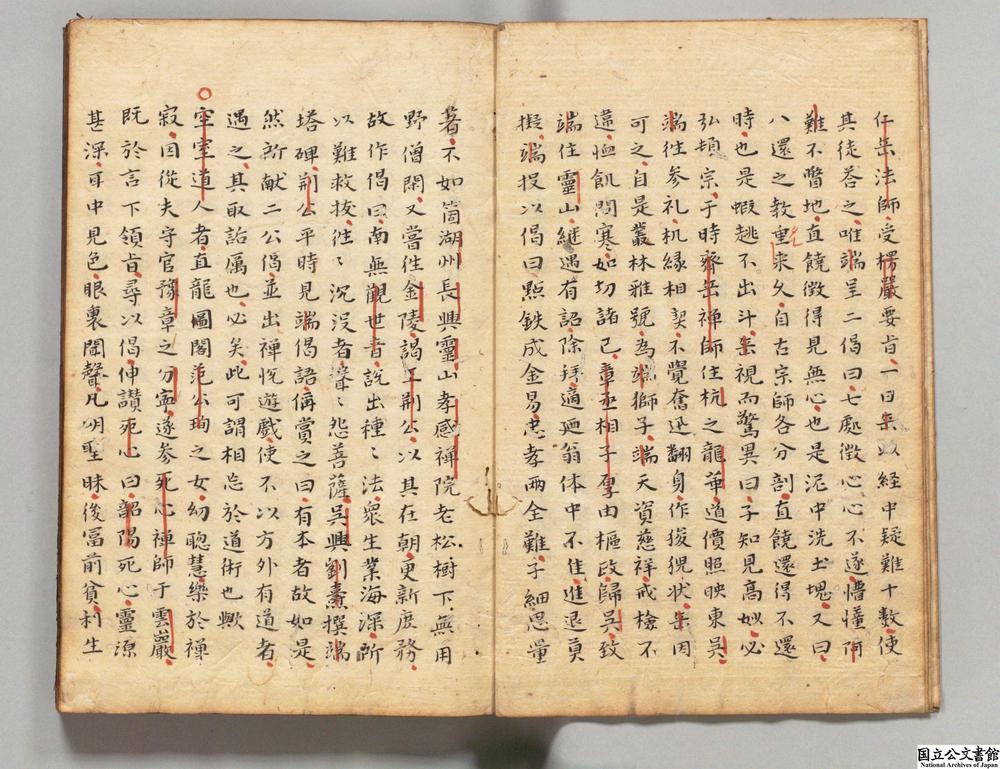 仁岳法師受楞嚴要旨一日岳以経中疑難十数使
其徒荅之唯端呈二偈曰七處徵心心不遂懵懂阿
難不瞥地直饒徵得見無心也是泥中洗土塊又曰
八還之教重来久自古宗師各分剖直饒還得不還
時也是蝦趒不出斗岳視而驚異曰子知見高妙必
弘頓宗于時齊岳禅師住杭之龍華道價照映東吴
端往参礼机縁相契不覺奮迅翻身作狻猊状岳因
可之自是叢林雅號為端獅子端天資慈祥戒撿不
違恤飢問寒如切諸己章丞相子厚由樞政歸吴致
端住靈山継遇有詔除拜適廼翁体中不佳進退莫
擬端投以偈曰點鉄成金易忠孝兩全難子細思量
著不如箇湖州長興靈山孝感禅院老松樹下無用
野僧閑又嘗徃金陵謁王荆公以其在朝更新庶務
故作偈曰南無觀世音説出種〻法衆生業海深所
以難救拔徃〻沉没者聲〻怨菩薩吴興劉燾撰端
塔碑荆公平時見端偈語偁賞之曰有本者故如是
然所献二公偈並出禅悅遊戲使不以方外有道者
遇之其取詬厲也必矣此可謂相忘於道術也歟
空室道人者直龍圖閣范公珣之女幼聡慧樂於禅
寂因從夫守官豫章之分寧遂参死心禅師于雲巖
既於言下領旨尋以偈伸讃死心曰韶陽死心靈源
甚深耳中見色眼裏聞聲凡明聖昧後冨前貧利生
国立公文書館
National Archives of Japan